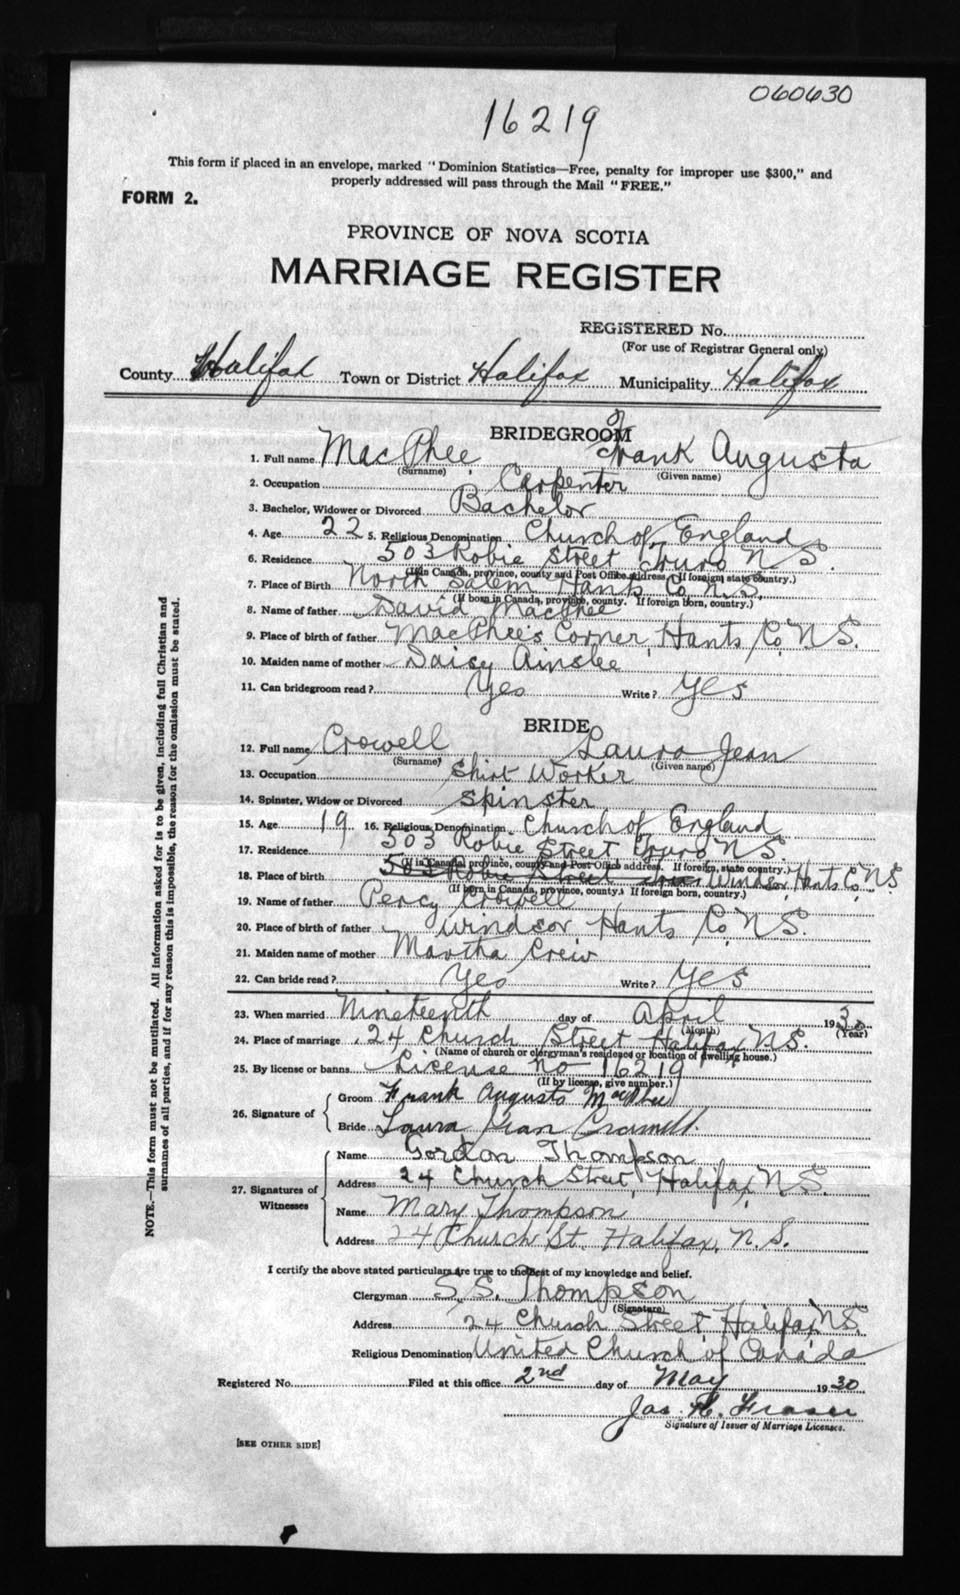 060630
16219
This form if placed in an envelope, marked "Dominion Statistics—Free, penalty for improper use $300," and
properly addressed will pass through the Mail "FREE."
FORM 2.
PROVINCE OF NOVA SCOTIA
MARRIAGE REGISTER
REGISTERED No.
(For use of Registrar General only)
County Halifax Town or District Halifax Municipality Halifax
BRIDEGROOM
1. Full name MacPhee Frank Augusta
(Surname) (Given name)
2. Occupation Carpenter
3. Bachelor, Widower or Divorced Bachelor
4. Age 22 5. Religious Denomination Church of England
6. Residence 503 Robie Street Truro N S.
(If in Canada, province, county and Post Office address. If foreign, state country.)
7. Place of Birth North Salem Hants Co. N.S.
(If born in Canada, province, county. If foreign born, country.)
8. Name of father David MacPhee
9. Place of birth of father MacPhee's Corner, Hants Co, N S.
10. Maiden name of mother Daisy Ainslee
11. Can bridegroom read? Yes Write? Yes
BRIDE
12. Full name Crowell Laura Jean
(Surname) (Given name)
13. Occupation Shirt Worker
14. Spinster, Widow or Divorced Spinster
15. Age 19 16. Religious Denomination Church of England
17. Residence 503 Robie Street Truro N S.
(If in Canada, province, county and Post Office address. If foreign, state country.)
18. Place of birth 503 Robie Street Windsor, Hants Co, N S
(If born in Canada, province, county. If foreign born, country.)
19. Name of father Percy Crowell
20. Place of birth of father Windsor Hants Co, N S.
21. Maiden name of mother Martha Creiw
22. Can bride read? Yes Write? Yes
23. When married Nineteenth day of April 1930
(Month) (Year)
24. Place of marriage 24 Church Street Halifax, N S.
(Name of church or clergyman's residence or location of dwelling house.)
25. By license or banns License No 16219
(If by license, give number.)
26. Signature of Groom Frank Augusta MacPhee
Bride Laura Jean Crowell.
27. Signatures of Witnesses
Name Gordon Thompson
Address 24 Church Street, Halifax, N S.
Name Mary Thompson
Address 24 Church St. Halifax, N. S.
I certify the above stated particulars are true to the best of my knowledge and belief.
Clergyman S. S. Thompson
(Signature)
Address 24 Church Street, Halifax, N S
Religious Denomination United Church of Canada
Registered No. Filed at this office 2nd day of May 1930
Jas. H. Fraser
Signature of Issuer of Marriage Licenses.
[SEE OTHER SIDE]
NOTE.—This form must not be mutilated. All information asked for is to be given, including full Christian and
surnames of all parties, and if for any reason this is impossible, the reason for the omission must be stated.